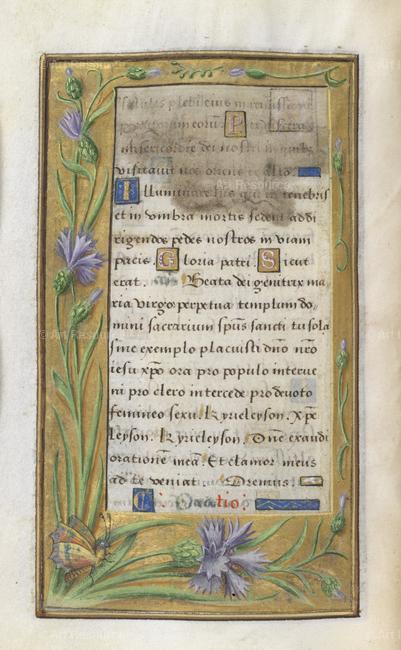 salutis plebi eius in remissione
peccatorum eorum Per viscera
misericordie dei nostri in quibz
visitauit nos oriens ex alto
Illuminare his qui in tenebris
et in vmbra mortis sedent ad di
rigendos pedes nostros in viam
pacis Gloria patri Sicut
erat. Beata dei genitrix ma
ria virgo perpetua templum do
mini sacrarium spūs sancti tu sola
sine exemplo placuisti dno nro
iesu xpo ora pro populo interue
ni pro clero intercede pro deuoto
femineo sexu. Kyrieleyson. Xpe
leyson. Kyrieleyson. Dne exaudi
orationē meā. Et clamor meus
ad te veniat. Oremus.
Oratio